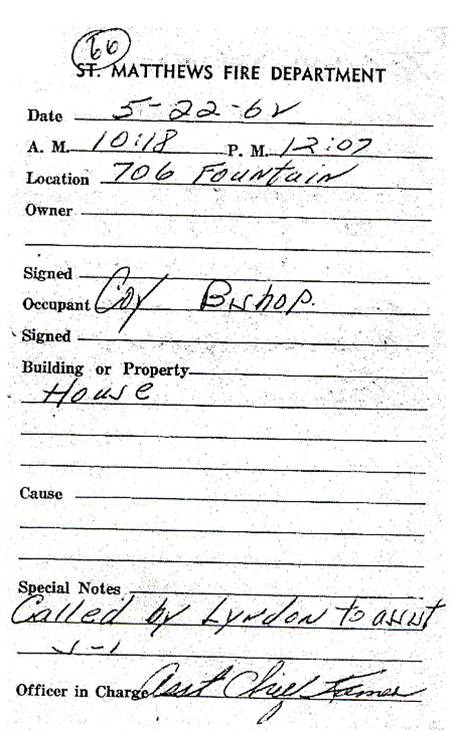 66
ST. MATTHEWS FIRE DEPARTMENT
Date 5-22-62
A. M. 10:18 P. M. 12:07
Location 706 Fountain
Owner
Signed
Occupant Coy Bishop.
Signed
Building or Property
House
Cause
Special Notes
Called by Lyndon to assist
Officer in Charge Asst Chief